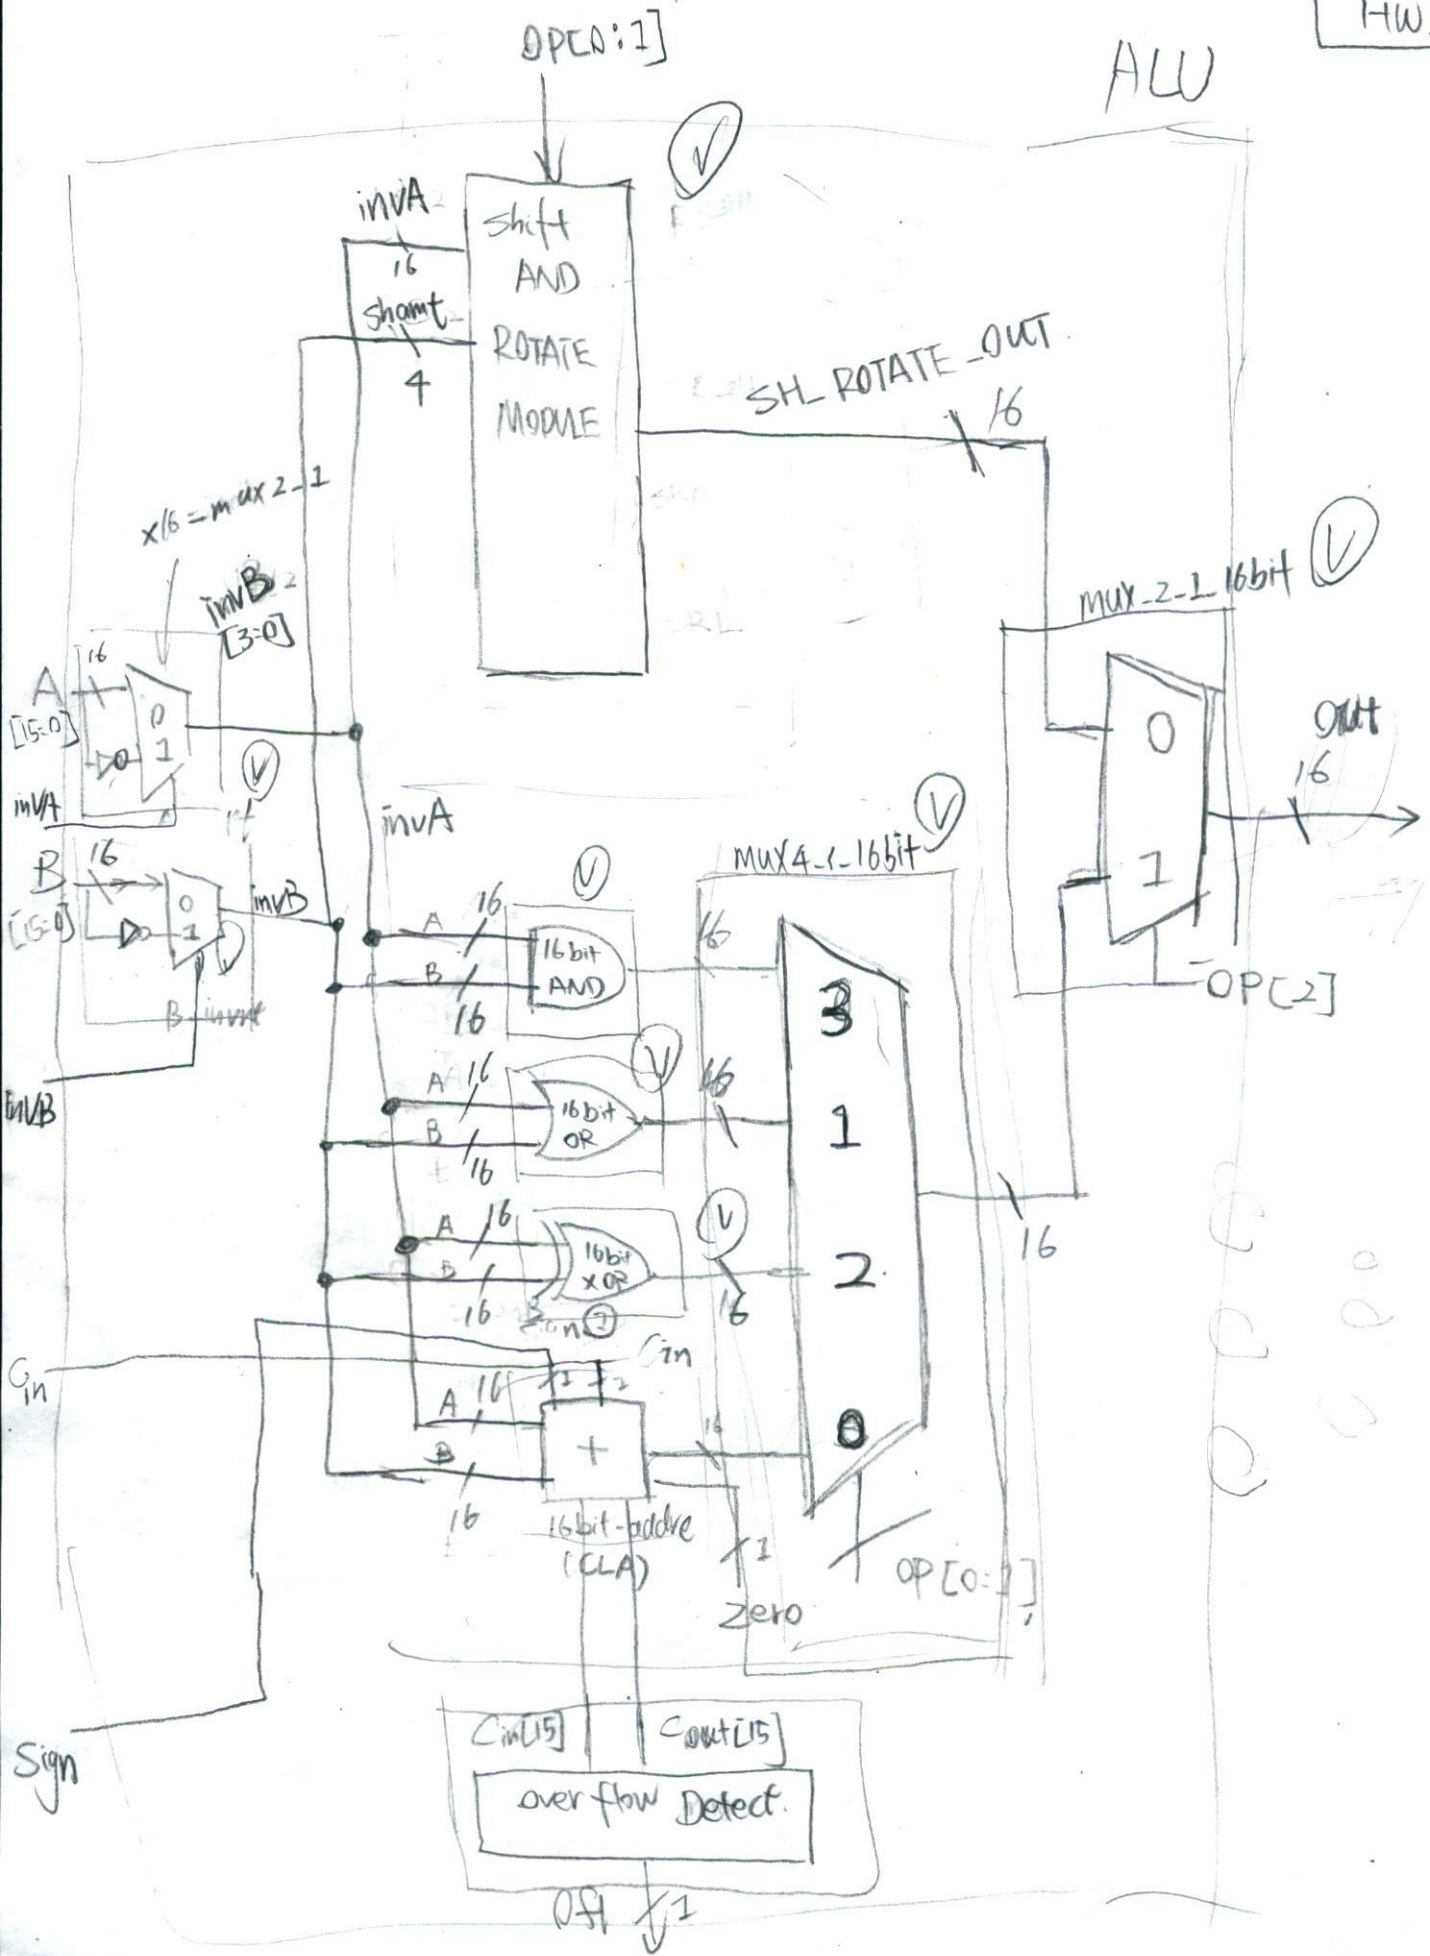 HW
ALU
OP[0:1]
V
invA
16
shamt
4
Shift
AND
ROTATE
MODULE
SH_ROTATE_OUT
16
x16 = mux2_1
invB
[3=0]
A
16
[15=0]
0
1
invA
V
B
16
[15=0]
0
1
invB
B-invrt
invB
invA
mux_2_1_16bit
V
0
1
OUT
16
OP[2]
mux4_1_16bit
V
V
A
16
B
16
16bit
AND
16
3
V
A
16
B
16
16bit
OR
16
1
V
A
16
B
16
16bit
XOR
16
2
16
Cin
Cin
1
A
16
B
16
+
16
0
16bit-addre
(CLA)
1
Zero
OP[0:1]
Sign
Cin[15]
Cout[15]
over flow Detect.
Ofl
1